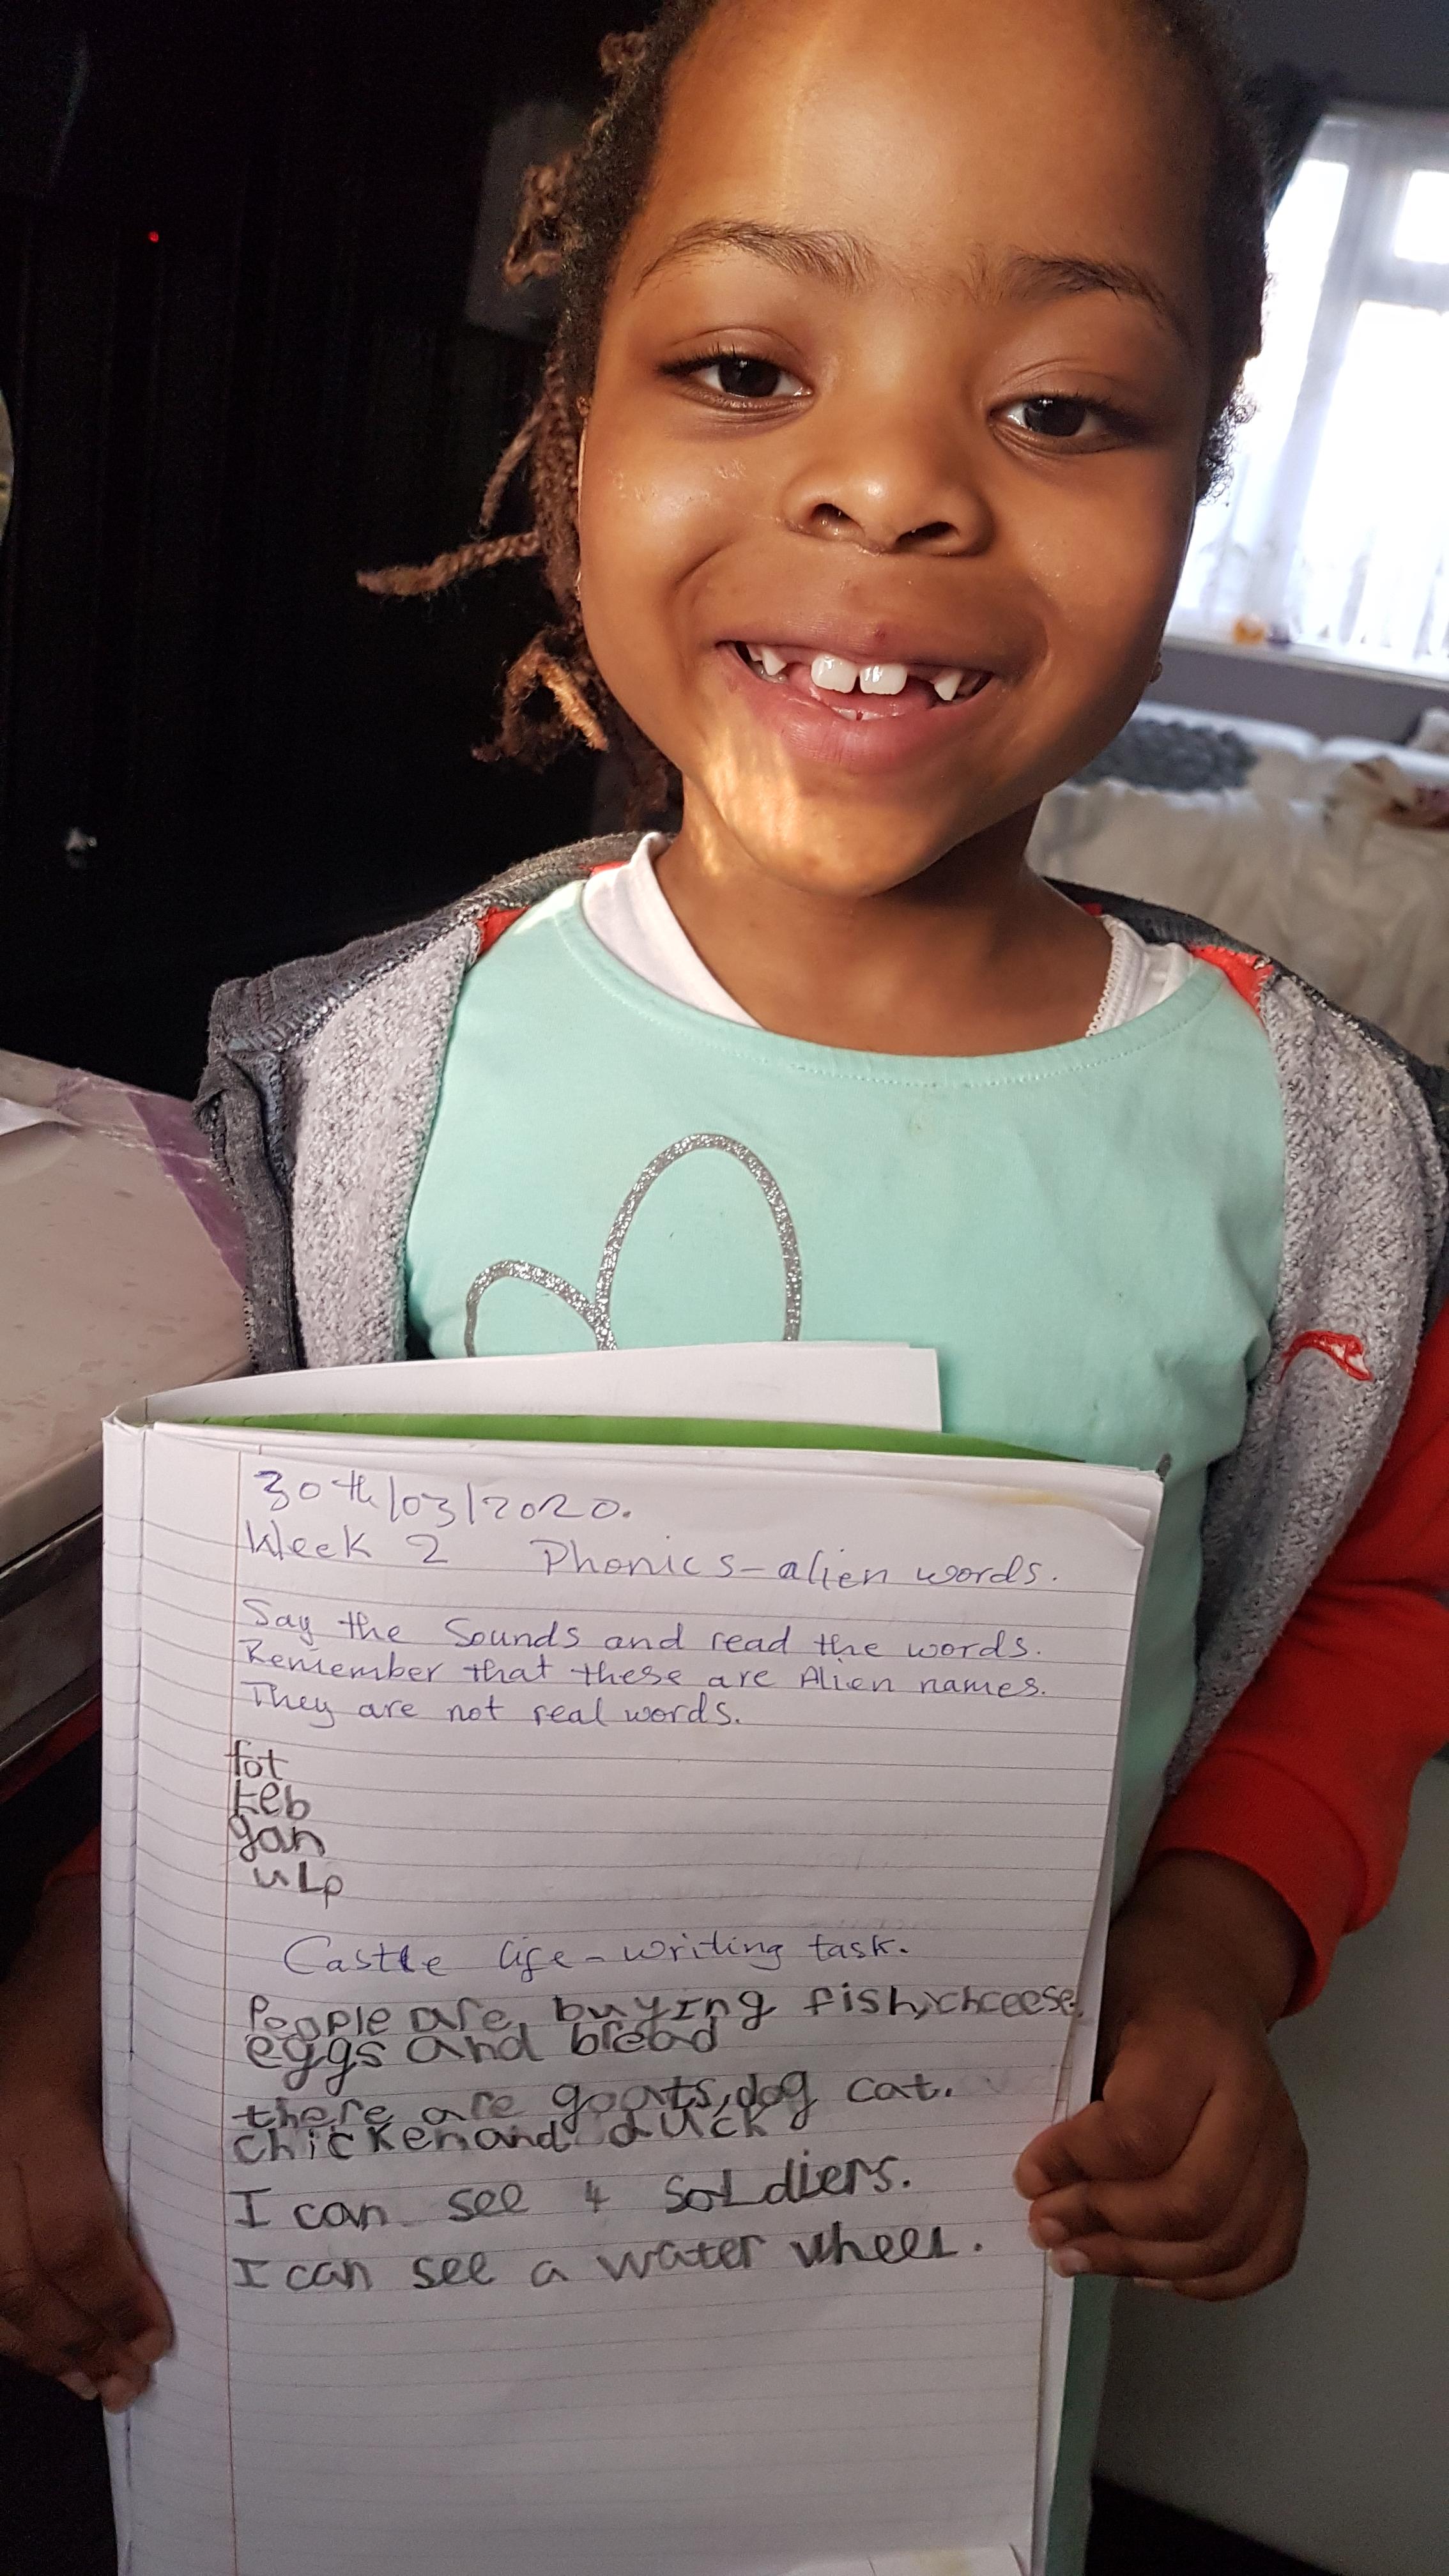 30th/03/2020.
Week 2 Phonics-alien words.
Say the Sounds and read the words.
Remember that these are Alien names.
They are not real words.
fot
keb
gan
uLp
Castle life-writing task.
People are buying fish,chceese,
eggs and bread
there are goats,dog cat.
chicken and duck
I can see 4 SoLdiers.
I can see a water wheeL.